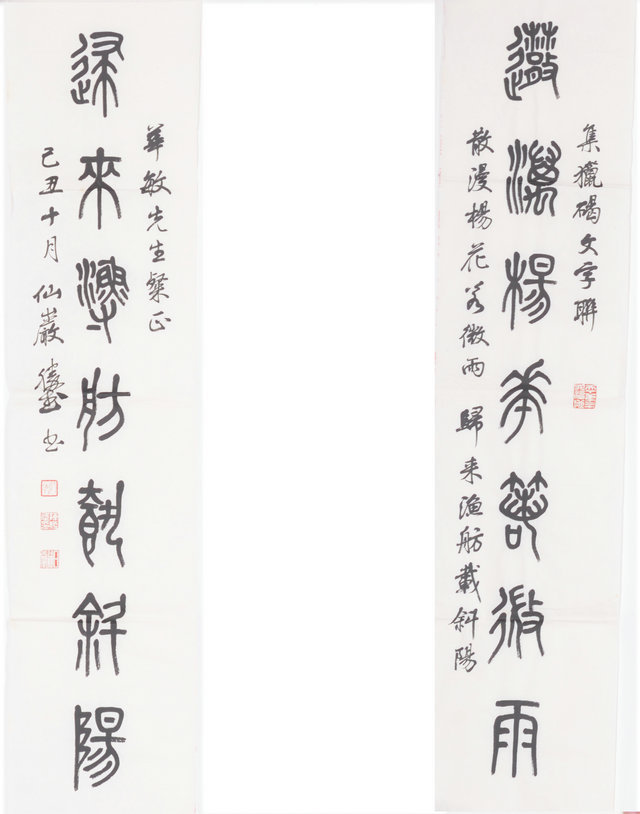 集獵碣文字聯
散漫楊花若微雨
散漫楊花若微雨 歸来漁舫載斜陽
華敏先生粲正
歸來漁舫載斜陽
己丑十月仙巖